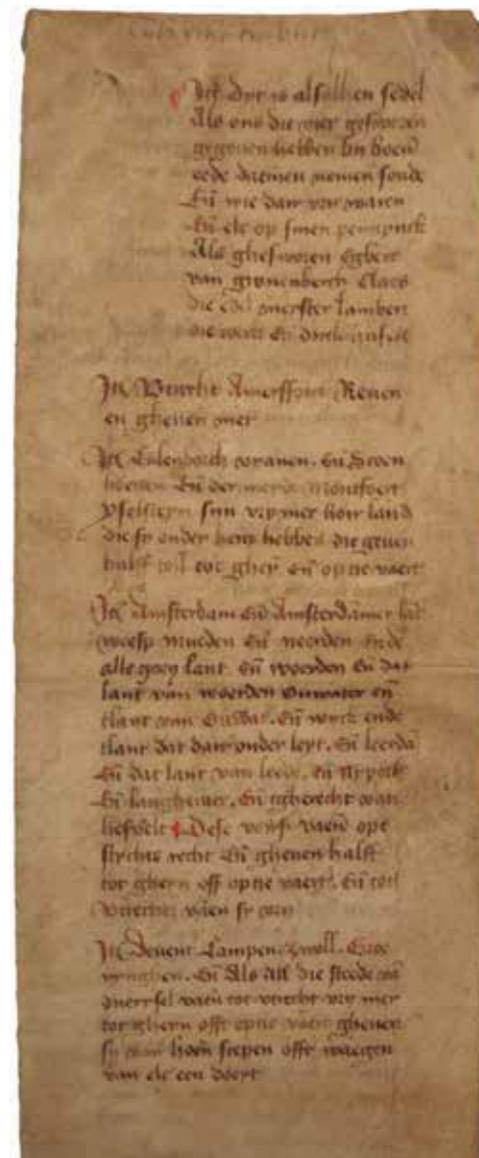 Itē dyt is alsulken sedel
Als ons die vier gesworen
gegeven hebben bii hoerē
eede datmen nemen soude
Eñ wie dair vry waren
Eñ elc op sinen pennynck
Als ghesworen Egbert
van gronenberch Claes
die edel meester lambert
die weert Eñ
Itē Utrecht Amersfoirt Renen
en gheven niet
Itē Culenborch vyanen. Eñ Scoen
hoeven Eñ der
yselsteyn siin vry mer hoir land
die sy onder hem hebben die geven
halff toll tot gheyn eñ optie vaert
Itē Amsterdam Eñ Amsterdamer lāt
weesp mueden Eñ neerden Ende
alle goey lant. Eñ woerden Eñ dat
lant van woerden Ouwater eñ
tlant van Eñ wyck ende
tlant dat dair onder leyt. Eñ leerdā
Eñ dat lant van leede. Eñ
Eñ Eñ tgherecht van
liesvelt Dese vorsz vaerē opt
stichts recht Eñ gheven halff
tot gheyn off optie vaert. Eñ toll
Utrecht
Itē Devent Campen zwoll. Groe
nynghen. Eñ Als all die steede vā
overysel vaerē tot utrecht vry mer
tot gheyn offt optie vaert gheven
sy van hoerē scepen offt waegen
van elc een doeyt